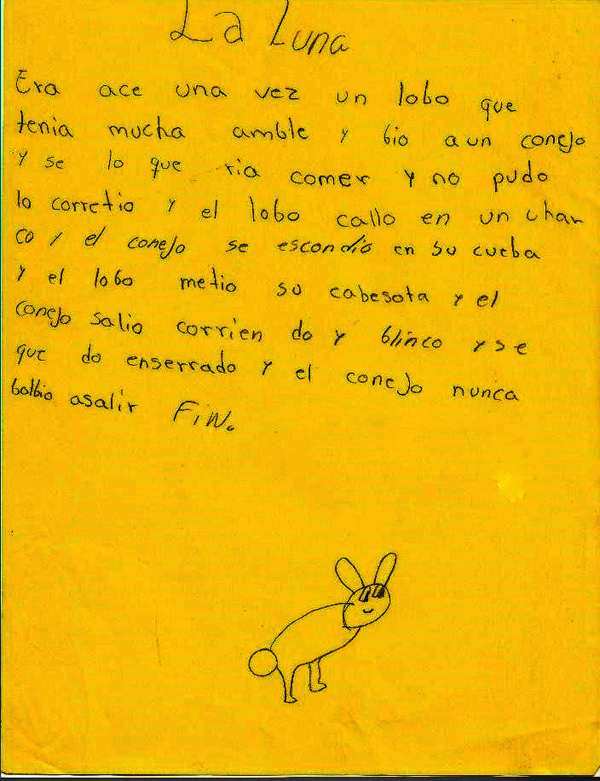 La Luna
Era ace una vez un lobo que
tenia mucha amble y bio a un conejo
y se lo que ria comer y no pudo
lo corretio y el lobo callo en un char
co y el conejo se escondió en su cueba
y el lobo metio su cabesota y el
conejo salio corrien do y blinco y se
que do enserrado y el conejo nunca
bolbio asalir FiN.